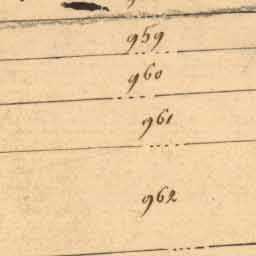 959
960
961
962